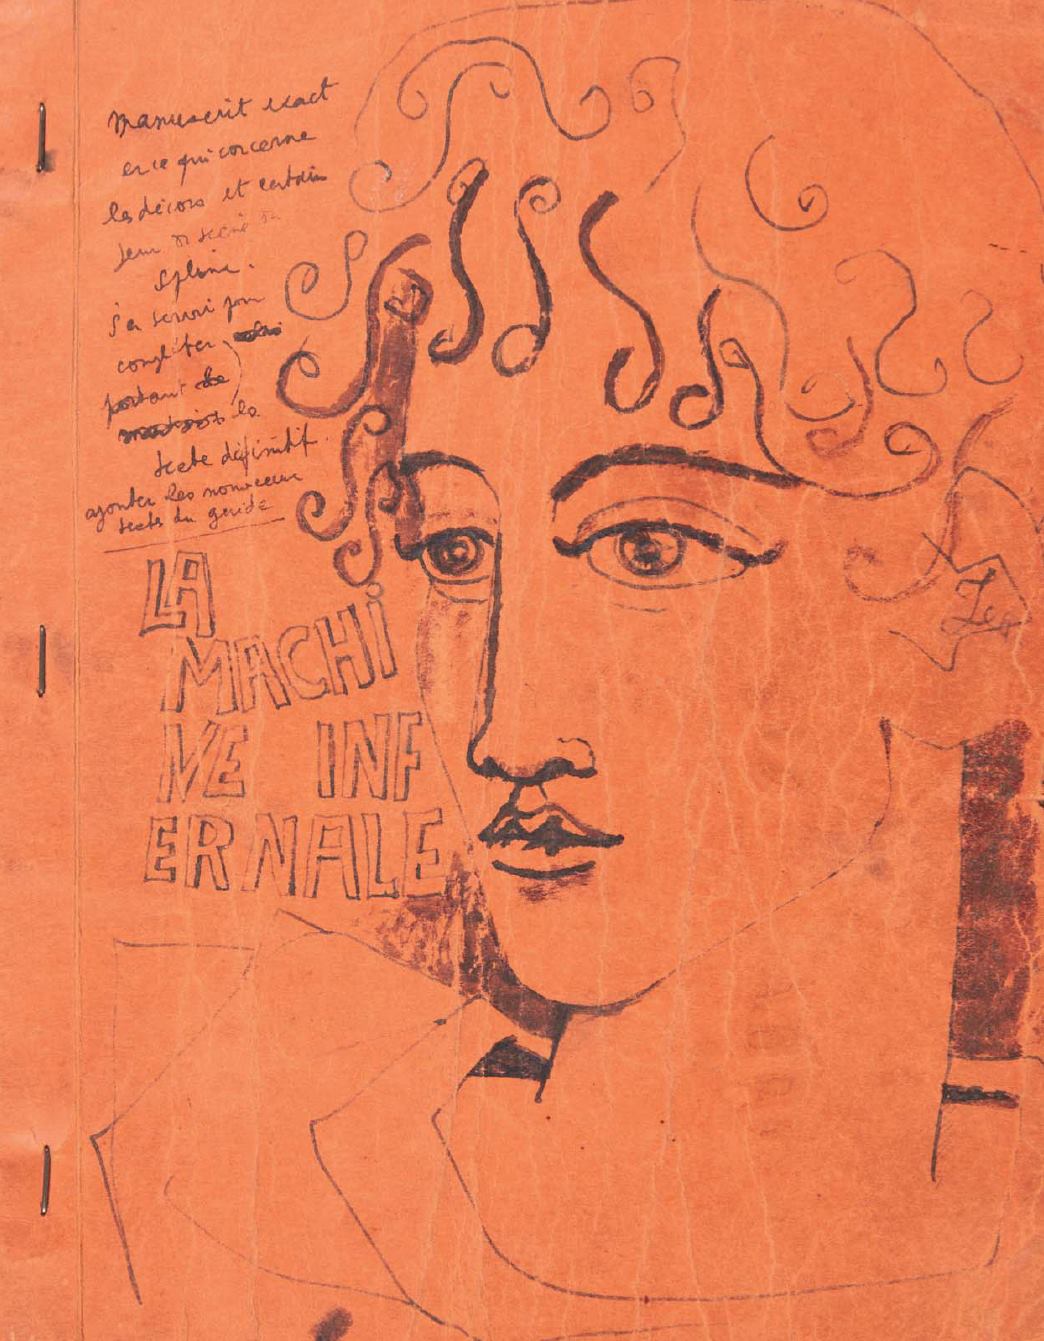 manuscrit exact
en ce qui concerne
les décors et certain
sphinx.
J'ai servi pour
complèter
portant
le
texte définitif.
ajouter les nouveaux
texts du guide
LA
MACHI
NE INF
ERNALE